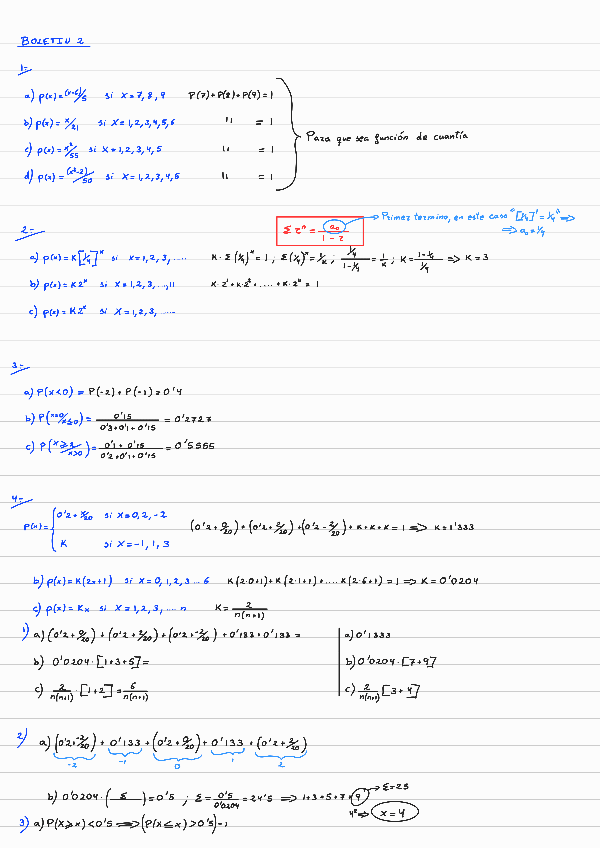 BOLETIN 2
1-
a) P(x) = (x-6)/5 si x = 7, 8, 9 P(7) + P(8) + P(9) = 1
b) P(x) = x/21 si x = 1,2,3,4,5,6 " = 1
Para que sea función de cuantía
c) P(x) = x²/55 si x = 1,2,3,4,5 " = 1
d) P(x) = (x²-2)/50 si x = 1,2,3,4,5 " = 1
Σ rⁿ = a₀/(1 - r) → Primer termino, en este caso "[1/4]¹ = 1/4" ⇒
⇒ a₀ = 1/4
2-
a) p(x) = K[1/4]ˣ si x = 1, 2, 3, ..... K · Σ(1/4)ˣ = 1 ; Σ(1/4)ˣ = 1/K ; (1/4)/(1 - 1/4) = 1/K ; K = (1 - 1/4)/(1/4) ⇒ K = 3
b) p(x) = K2ˣ si x = 1,2,3, ..., 11 K·2¹ + K·2² + ..... + K·2ˣ = 1
c) p(x) = K2ˣ si x = 1,2,3, .....
3-
a) P(x<0) = P(-2) + P(-1) = 0'4
b) P(x=0/x≤0) = 0'15/(0'3+0'1+0'15) = 0'2727
c) P(x≥2/x>0) = (0'1 + 0'15)/(0'2+0'1+0'15) = 0'5555
4-
P(x) = { 0'2 + x/20 si x = 0, 2, -2 (0'2 + 0/20) + (0'2 + 2/20) + (0'2 - 2/20) + K + K + K = 1 ⇒ K = 1'333
K si x = -1, 1, 3
b) p(x) = K(2x+1) si x = 0, 1, 2, 3 ... 6 K(2·0+1) + K(2·1+1) + .... K(2·6+1) = 1 ⇒ K = 0'0204
c) p(x) = Kx si x = 1, 2, 3, .... n K = 2/n(n+1)
1) a) (0'2 + 0/20) + (0'2 + 2/20) + (0'2 + -2/20) + 0'133 + 0'133 = a) 0'1333
b) 0'0204 · [1+3+5] = b) 0'0204 · [7+9]
c) 2/n(n+1) · [1+2] = 6/n(n+1) c) 2/n(n+1) [3+4]
2) a) (0'2 + -2/20) + 0'133 + (0'2 + 0/20) + 0'133 + (0'2 + 2/20)
-2 -1 0 1 2
b) 0'0204 · ( Σ ) = 0'5 ; Σ = 0'5/0'0204 = 24'5 ⇒ 1+3+5+7+9 → Σ=25
4º ⇒ x = 4
3) a) P(X ≥ x) < 0'5 ⇒ (P(X ≤ x) > 0'5) - 1